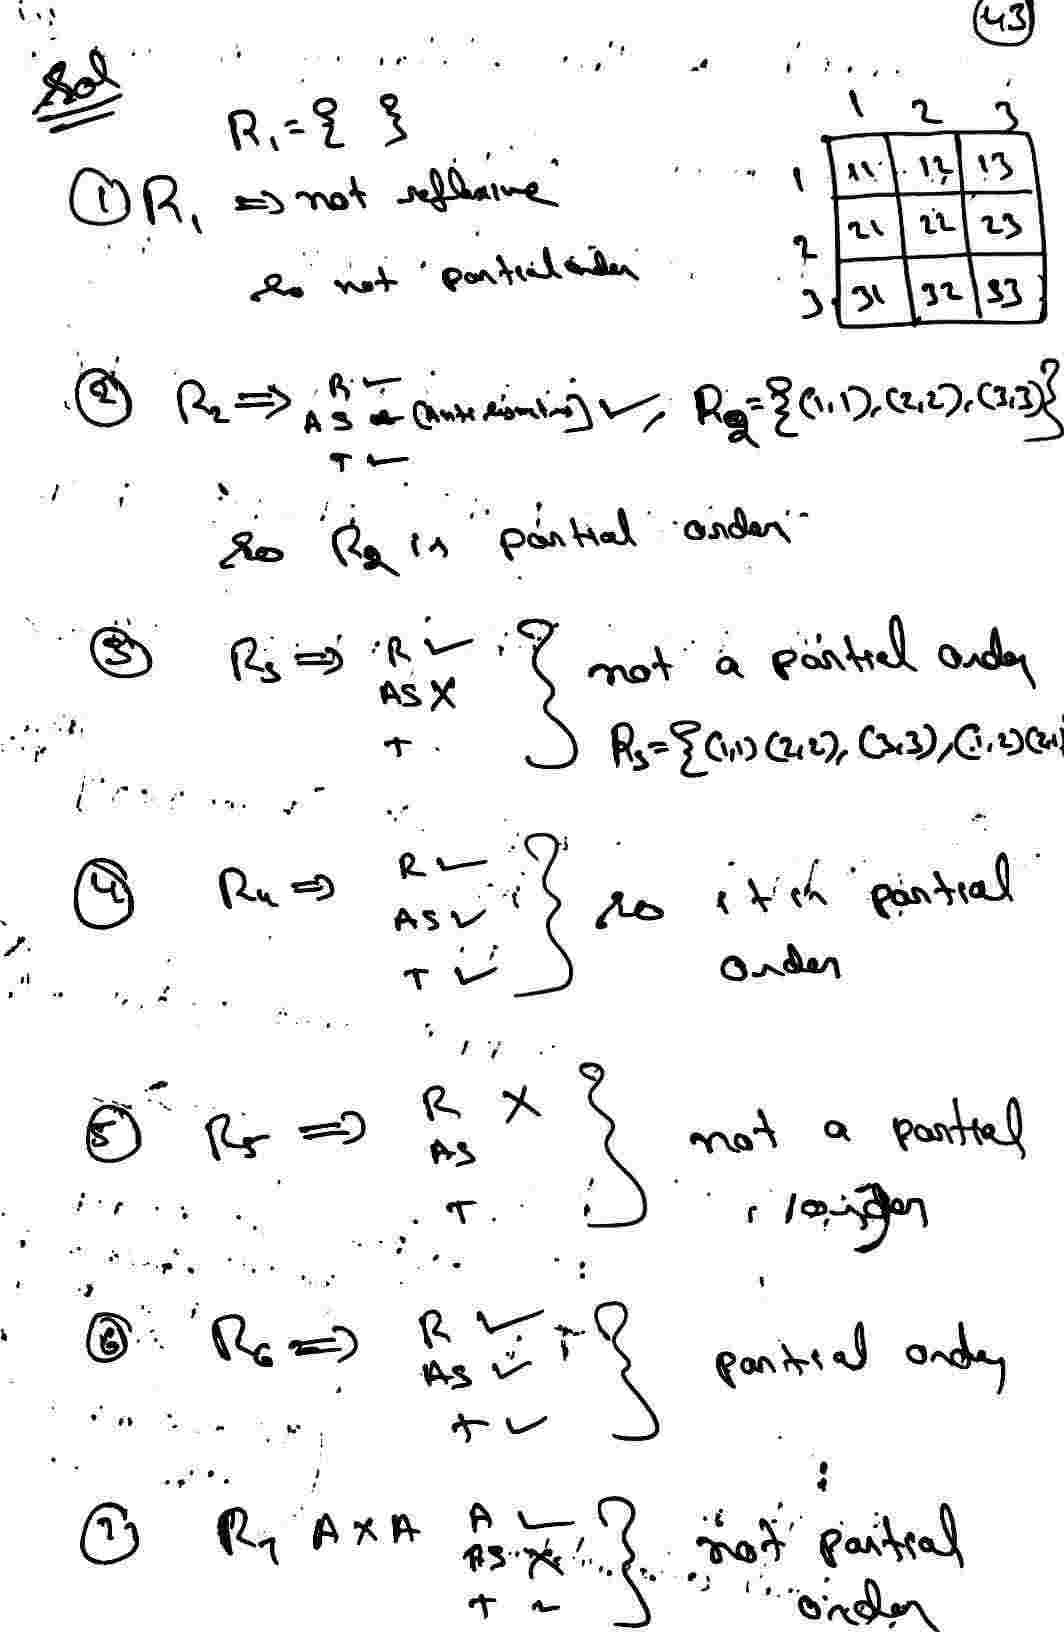 43
Sol
R₁ = { }
1 2 3
1 11 12 13
2 21 22 23
3 31 32 33
① R₁ ⇒ not reflexive
so not partial order
② R₂ ⇒ R ✓
AS (Anti symmetric) ✓, R₂ = {(1,1), (2,2), (3,3)}
T ✓
so R₂ is partial order
③ R₃ ⇒ R ✓
AS X
T
not a partial order
R₃ = {(1,1) (2,2), (3,3), (1,2) (2,1)
④ R₄ ⇒ R ✓
AS ✓
T ✓
so it is partial
order
⑤ R₅ ⇒ R X
AS
T
not a partial
order
⑥ R₆ ⇒ R ✓
AS ✓
T ✓
partial order
⑦ R₇ A X A A ✓
AS X
T ~
not partial
order